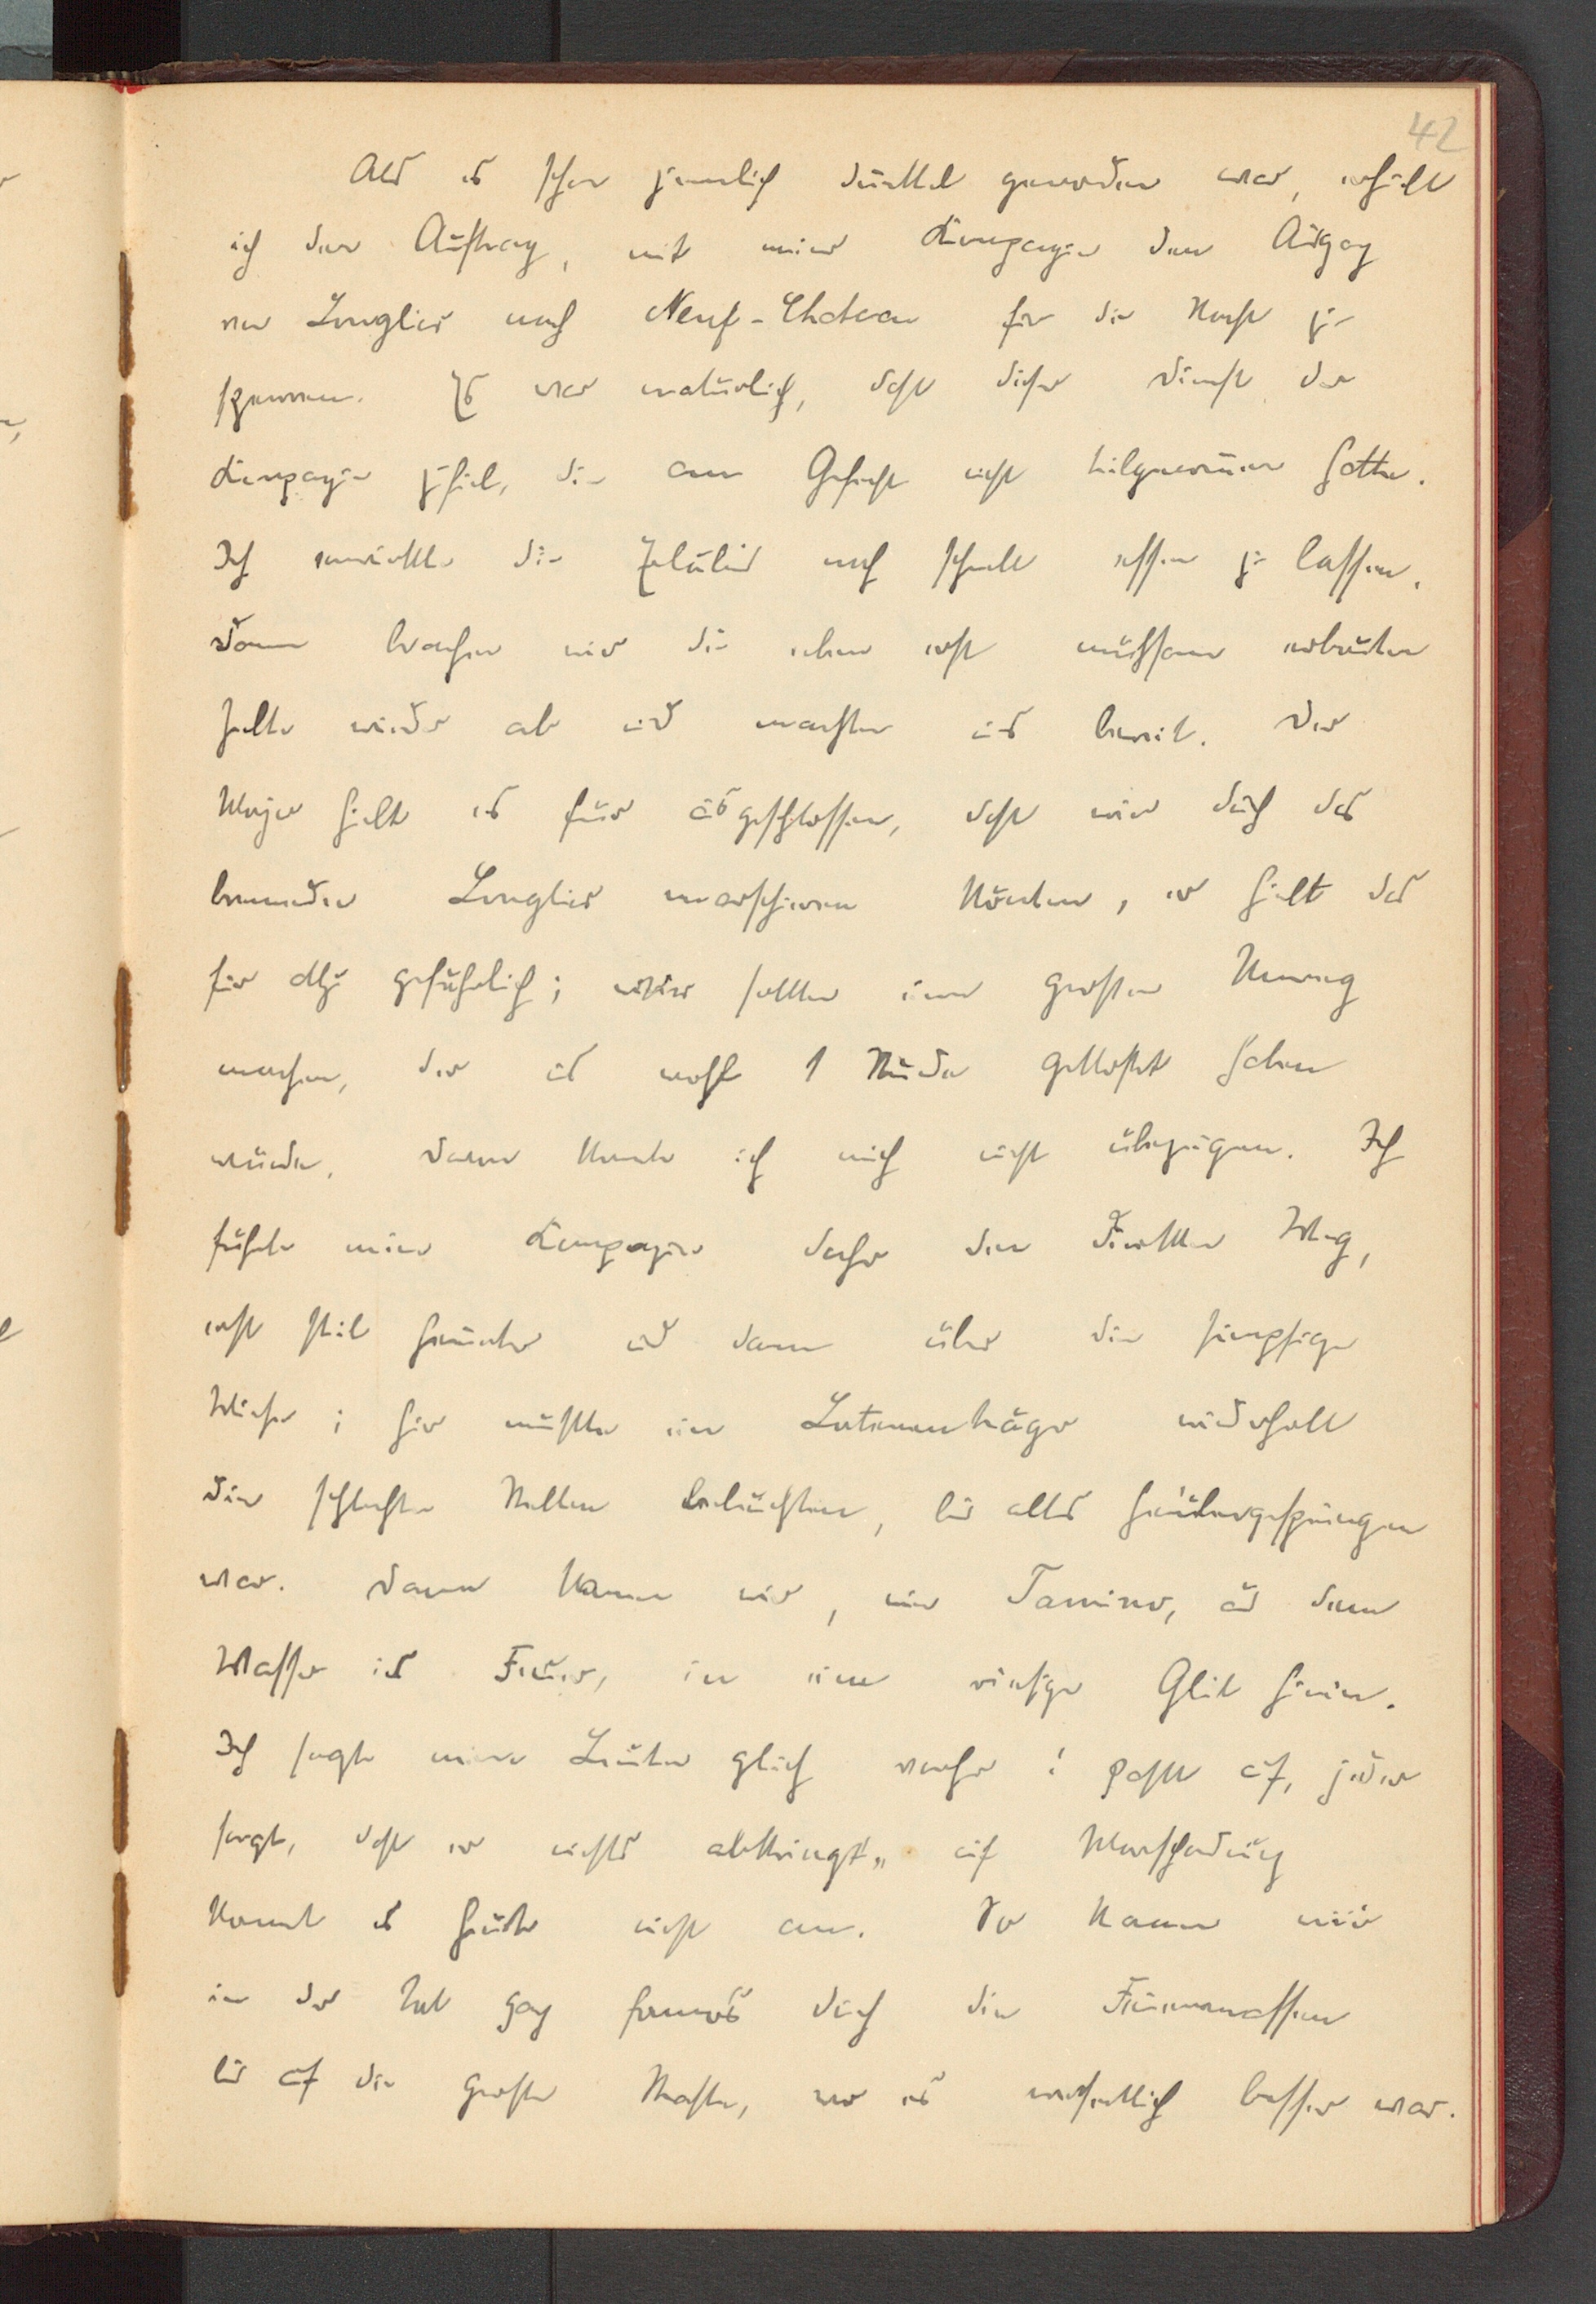 42
Als es schon ziemlich dunkel geworden war, erhielt
ich den Auftrag, mit meiner Kompagnie den Ausgang
von Longlier nach Neuf-Chateau für die Nacht zu
sperren. Es war natürlich, dass dieser Dienst der
Kompagnie zufiel, die am Gefecht nicht teilgenommen hatte.
Ich erwirkte die Erlaubnis noch schnell essen zu lassen,
dann brachen wir die eben erst mühsam erbauten
Zelte wieder ab und machten uns bereit. Der
Major hielt es für ausgeschlossen, dass wir durch das
brennende Longlier marschieren könnten, er hielt das
für allzu gefährlich; wir sollten einen grossen Umweg
machen, der uns wohl 1 Stunde gekostet haben
würde. Davon konnte ich mich nicht überzeugen. Ich
führte meine Kompagnie daher den direkten Weg,
erst steil herunter und dann über die sumpfige
Wiese; hier mussten ein Laternenträger wiederholt
die schlechten Stellen beleuchten, bis alles hinübergesprungen
war. Dann kamen wir, wie Tamino, aus dem
Wasser ins Feuer, in eine riesige Glut hinein.
Ich sagte meinen Leuten gleich vorher: passt auf, jeder
sorgt, dass er nichts abkriegt, auf Marschordnung
kommt es heute nicht an. So kamen wir
in der Tat ganz famos durch die Feuermassen
bis auf die grosse Strasse, wo es wesentlich besser war.